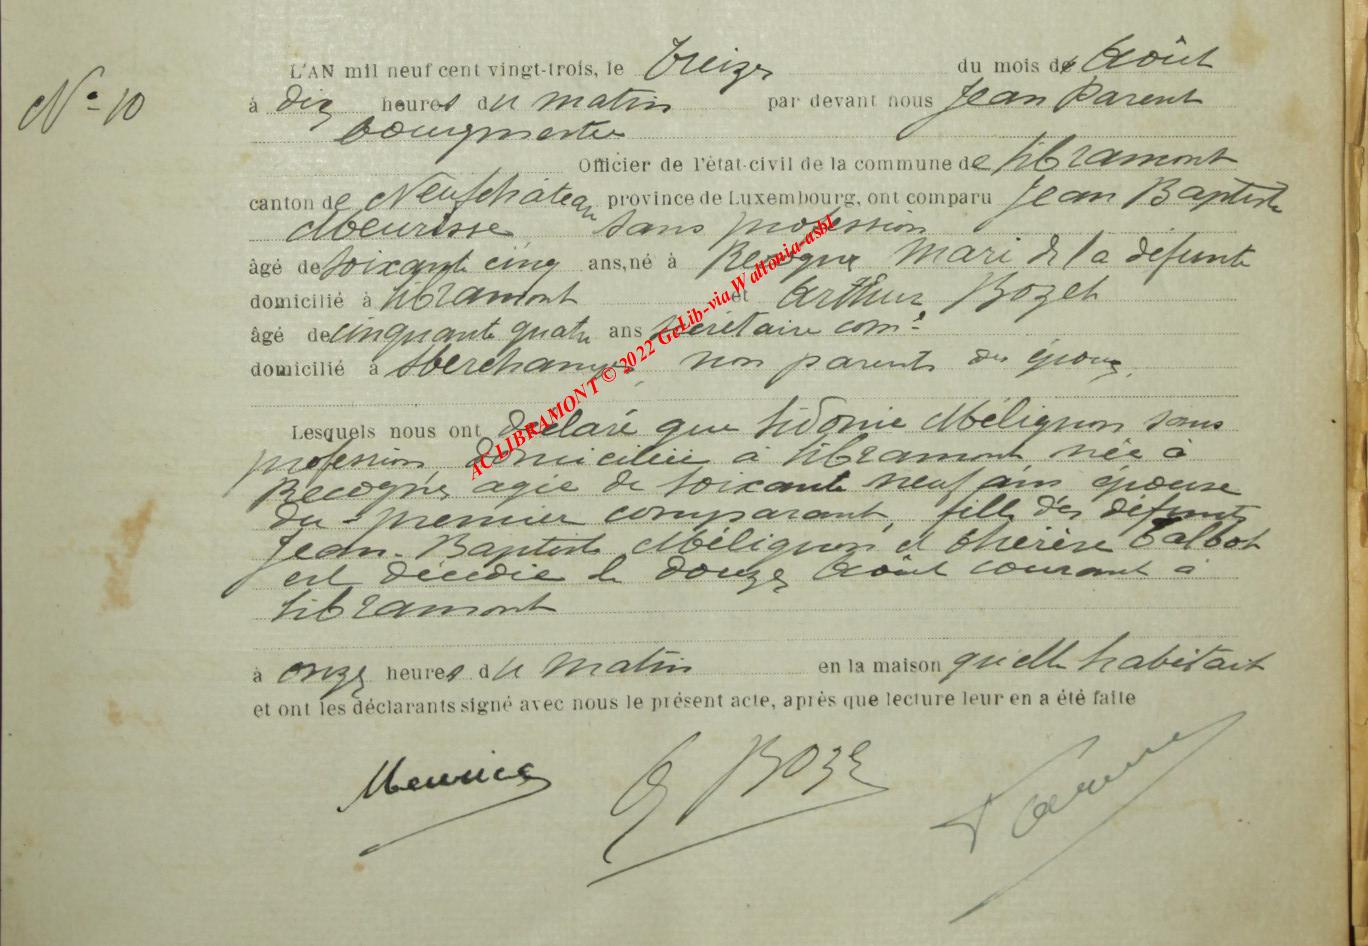 N° 10
L'AN mil neuf cent vingt-trois, le treize du mois de Août
à dix heures du matin par devant nous Jean Parent
bourgmestre
Officier de l'état-civil de la commune de Libramont
canton de Neufchâteau province de Luxembourg, ont comparu Jean Baptiste
Meurisse, sans profession
âgé de soixante cinq ans, né à Recogne mari de la défunte
domicilié à Libramont et Arthur Bozet
âgé de cinquante quatre ans secrétaire com.
domicilié à non parents des époux,
Lesquels nous ont déclaré que Sidonie Mélignon sans
profession domiciliée à Libramont née à
Recogne agée de soixante neuf ans épouse
du premier comparant, fille des défunts
Jean-Baptiste Mélignon et Thérèse Talbot
est décédée le douze Août courant à
Libramont
à onze heures du matin en la maison qu'elle habitait
et ont les déclarants signé avec nous le présent acte, après que lecture leur en a été faite
Meurice A Boze Parent
ACLIBRAMONT © 2022 GeLib-via Wallonia-asbl